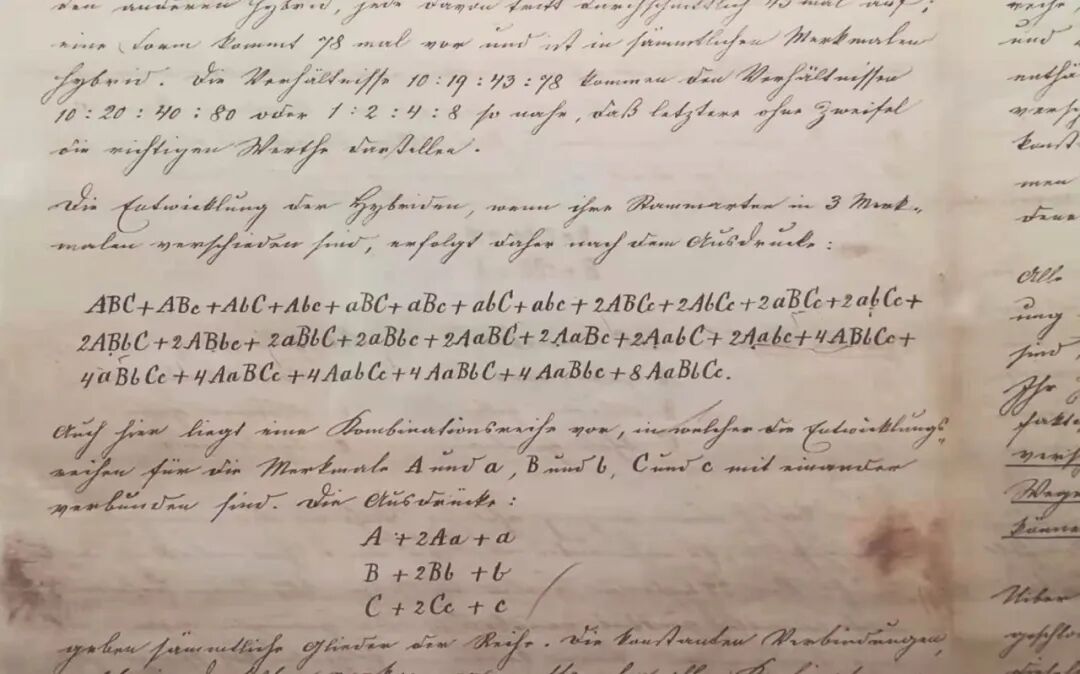 den anderen hybrid, jede davon tritt durchschnittlich 43 mal auf;
eine Form kommt 78 mal vor und ist in sämmtlichen Merkmalen
hybrid. Die Verhältnisse 10:19:43:78 kommen den Verhältnissen
10:20:40:80 oder 1:2:4:8 so nahe, daß letztere ohne Zweifel
die richtigen Werthe darstellen.
Die Entwicklung der Hybriden, wenn ihre Stammarten in 3 Merk-
malen verschieden sind, erfolgt daher nach dem Ausdrucke:
ABC+ABc+AbC+Abc+aBC+aBc+abC+abc+2ABCc+2AbCc+2aBCc+2abCc+
2ABbC+2ABbc+2aBbC+2aBbc+2AaBC+2AaBc+2AabC+2Aabc+4ABbCc+
4aBbCc+4AaBCc+4AabCc+4AaBbC+4AaBbc+8AaBbCc.
Auch hier liegt eine Kombinationsreihe vor, in welcher die Entwicklungs-
reihen für die Merkmale A und a, B und b, C und c mit einander
verbunden sind. Die Ausdrücke:
A+2Aa+a
B+2Bb+b
C+2Cc+c
geben sämmtliche Glieder der Reihe. Die konstanten Verbindungen,
und
enthä
versch
konst
men
dene
Alle
ung
sind
Ihr
fakt
versch
Wege
können
Uiber
geschlo